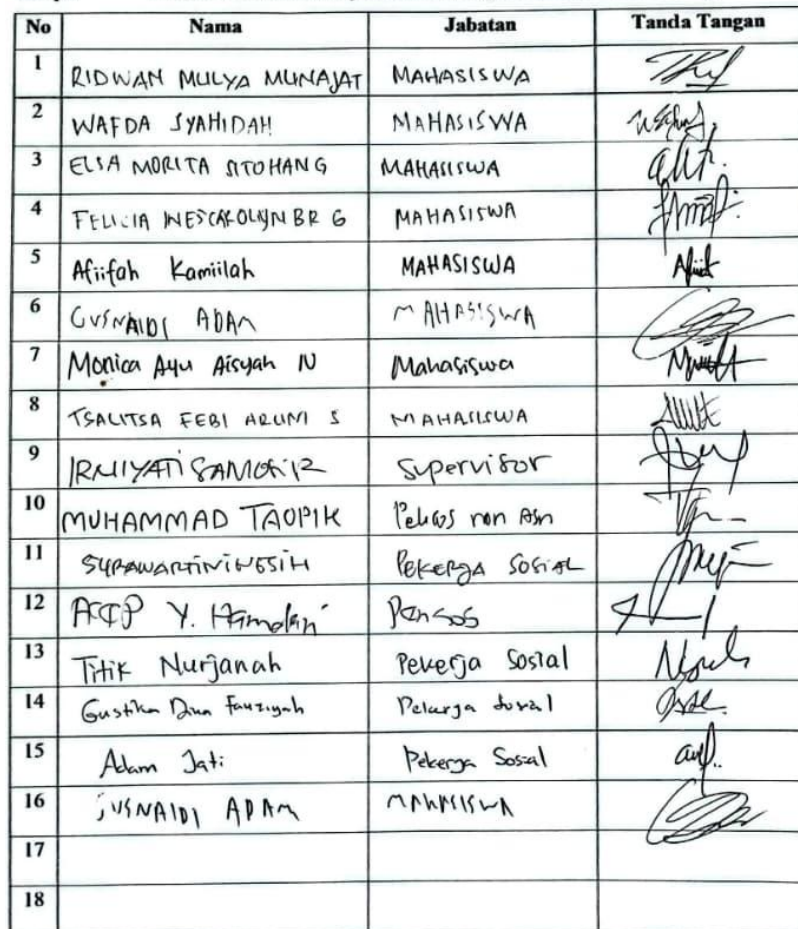 No Nama Jabatan Tanda Tangan
1 RIDWAN MULYA MUNAJAT MAHASISWA
2 WAFDA SYAHIDAH MAHASISWA
3 ELSA MORITA SITOHANG MAHASISWA
4 FELICIA INESCAROLLYN BR G MAHASISWA
5 Afiifah Kamiilah MAHASISWA
6 GUSNAIDI ADAM MAHASISWA
7 Monica Ayu Aisyah N Mahasiswa
8 TSALITSA FEBI ARUMI S MAHASISWA
9 IRMIYATI SAMOSIR Supervisor
10 MUHAMMAD TAOPIK Peksos non Asn
11 PEKERJA SOSIAL
12 Y. Hamdani Pensos
13 Titik Nurjanah Pekerja Sosial
14 Gustika Dwi Fauziyah Pekerja Sosial
15 Adam Jati Pekerja Sosial
16 GUSNAIDI ADAM MAHASISWA
17
18